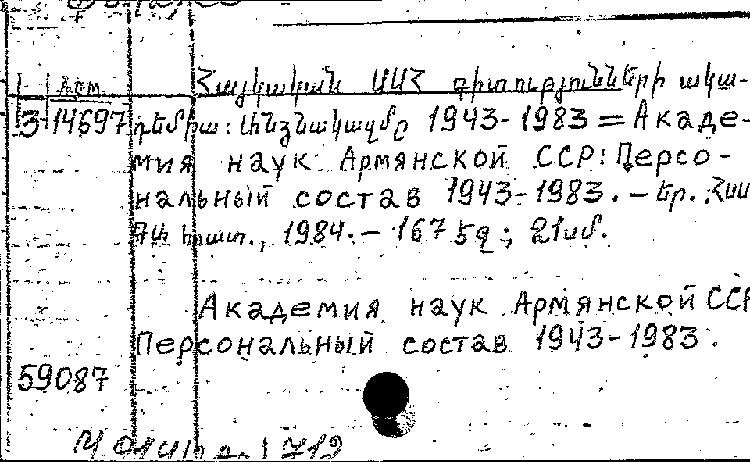 Հայկական ՍՍՀ գիտությունների ակա-
3-14697 դեմիա: Անձնակազմը 1943-1983 = Акаде-
мия наук Армянской ССР: Персо-
нальный состав 1943-1983. — Եր. ՀՍՍՀ
ԳԱ հրատ., 1984. — 167 էջ; 21սմ.
Академия наук Армянской ССР
Персональный состав 1943-1983.
59087